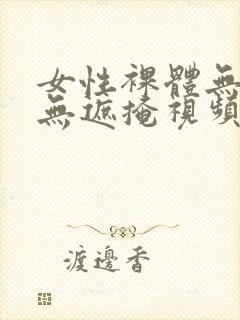 女性裸體無
無遮掩視頻
渡邊香